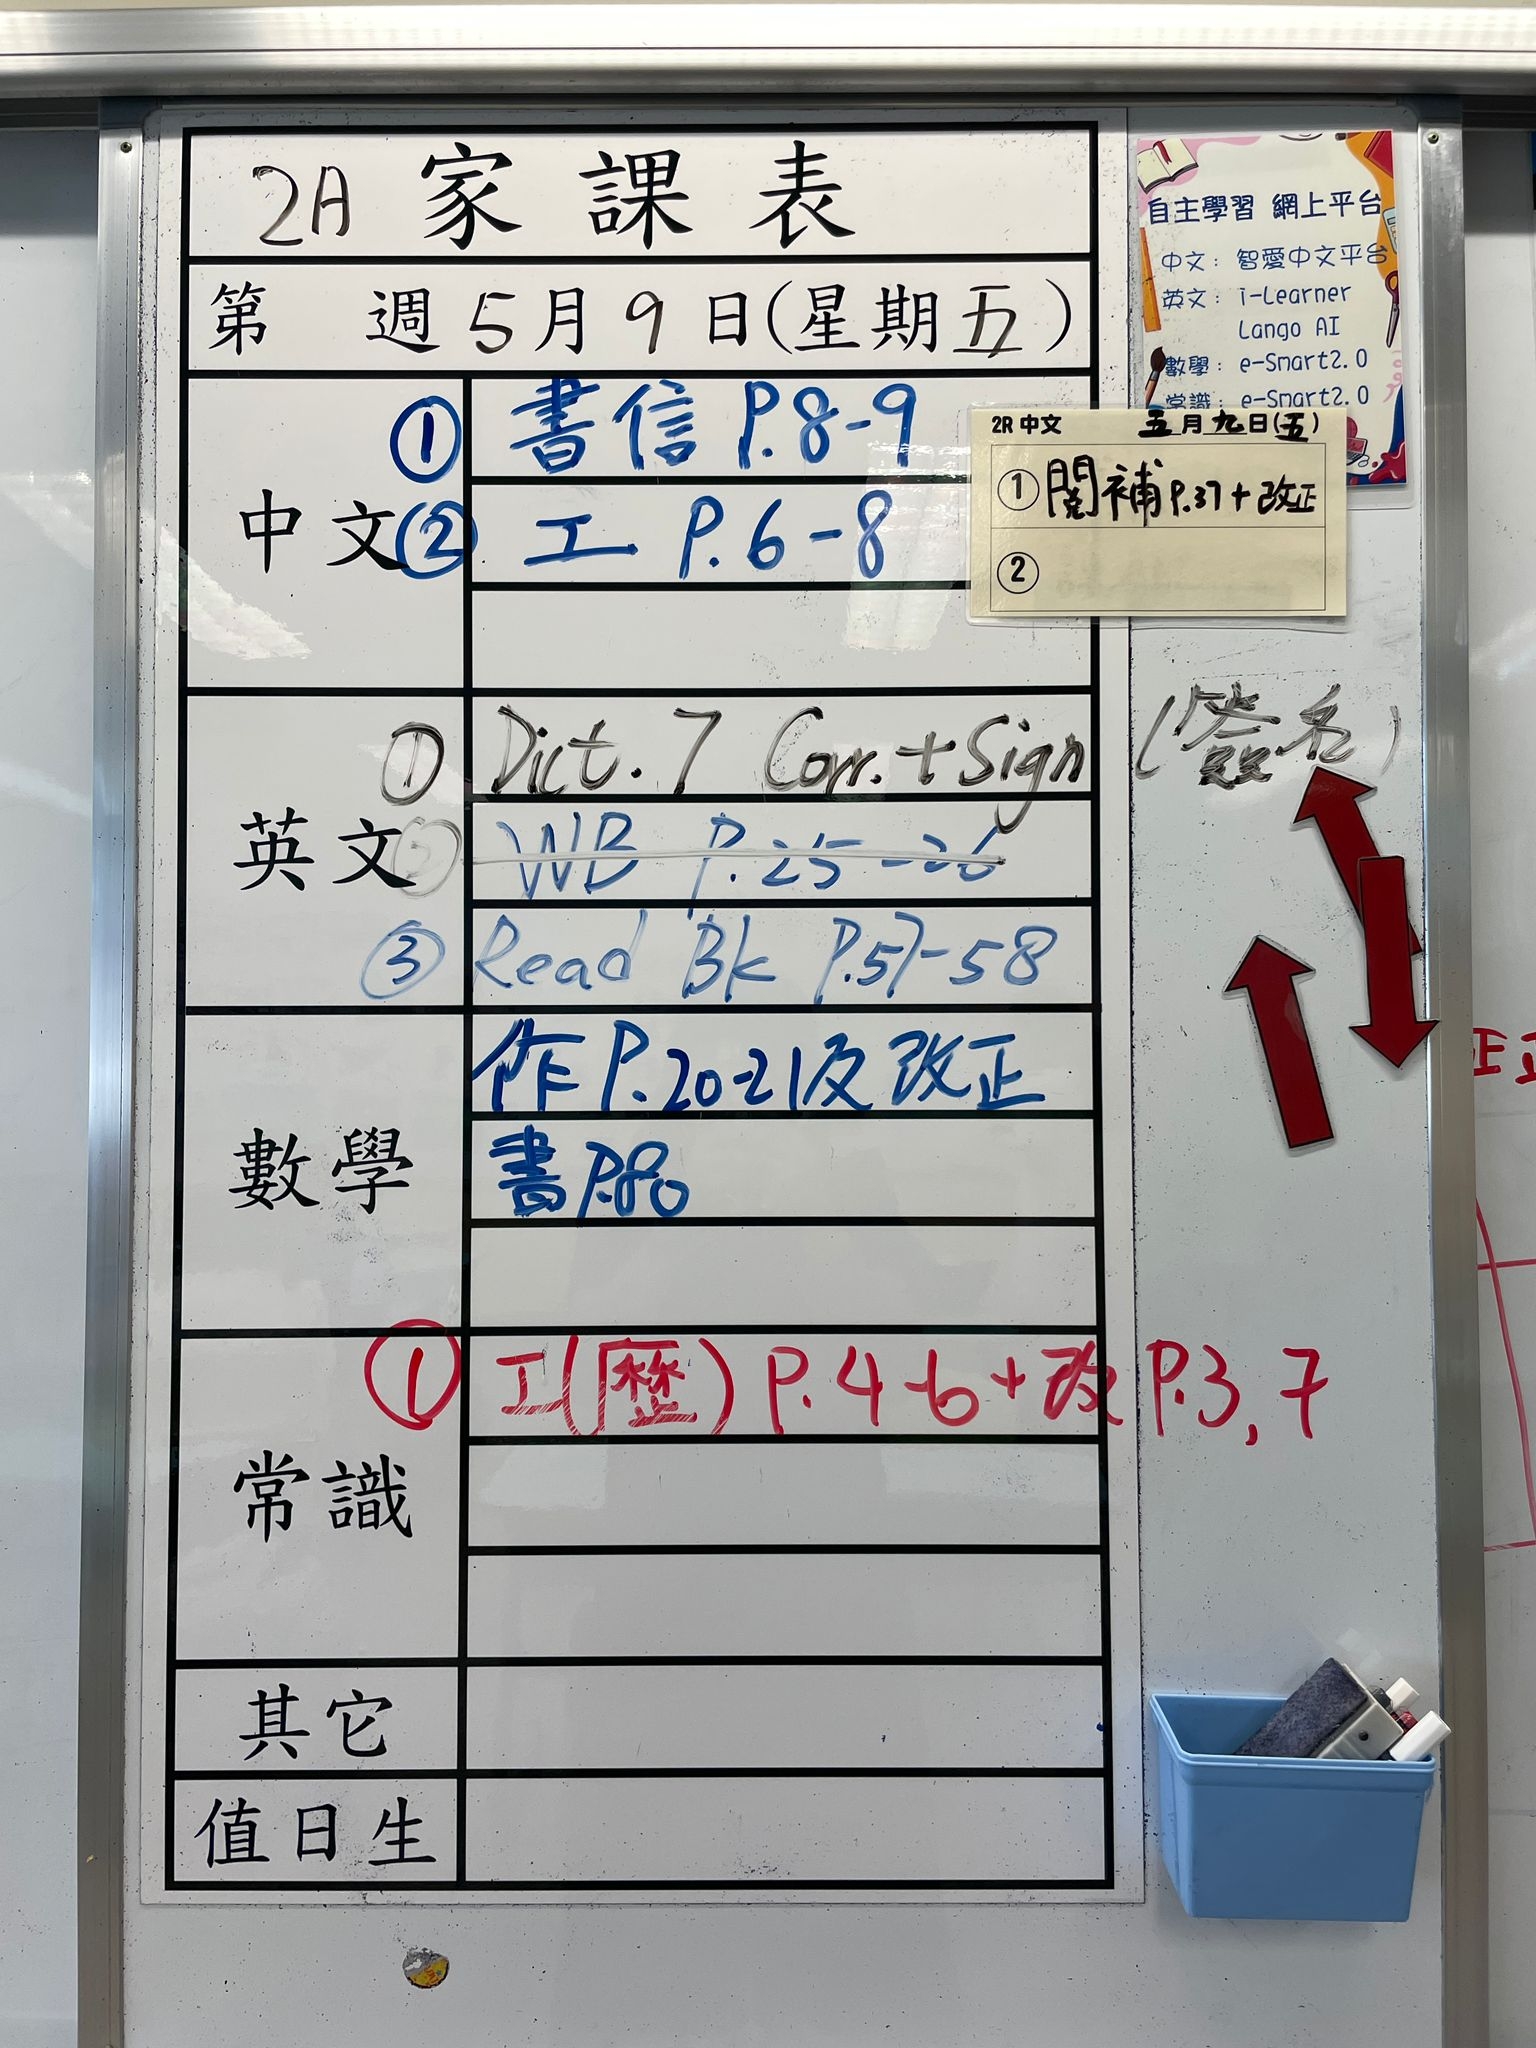 2A 家課表
第 週 5月9日(星期五)
中文
① 書信 P.8-9
② 工 P.6-8
英文
① Dict. 7 Corr. + Sign (簽名)
② WB P.25-26
③ Read Bk P.57-58
數學
作P.20-21及改正
書P.80
常識
① 工(歷) P.4-6+改P.3,7
其它
值日生
自主學習 網上平台
中文: 智愛中文平台
英文: i-Learner
Lango AI
數學: e-Smart2.0
常識: e-Smart2.0
2R 中文 五月九日(五)
① 閱補P.37+改正
②